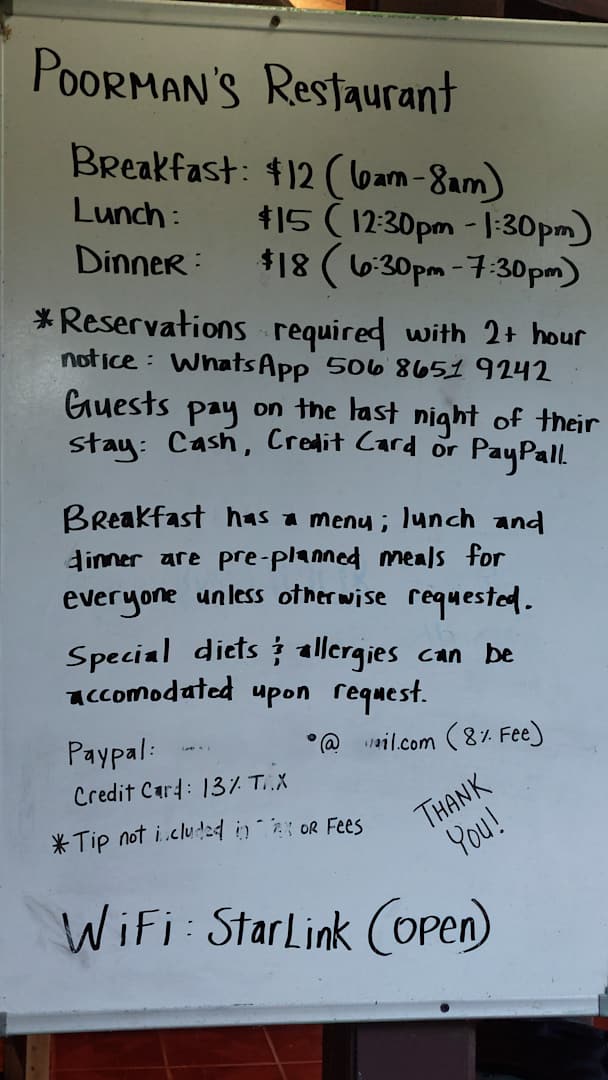 POORMAN'S Restaurant
Breakfast: $12 (6am-8am)
Lunch: $15 (12:30pm - 1:30pm)
Dinner: $18 (6:30pm - 7:30pm)
*Reservations required with 2+ hour
notice: WhatsApp 506 8651 9242
Guests pay on the last night of their
stay: Cash, Credit Card or PayPall.
Breakfast has a menu; lunch and
dinner are pre-planned meals for
everyone unless otherwise requested.
Special diets & allergies can be
accomodated upon request.
Paypal: @ (8% Fee)
Credit Card: 13% TAX
*Tip not included in OR Fees
THANK
YOU!
WiFi: StarLink (open)